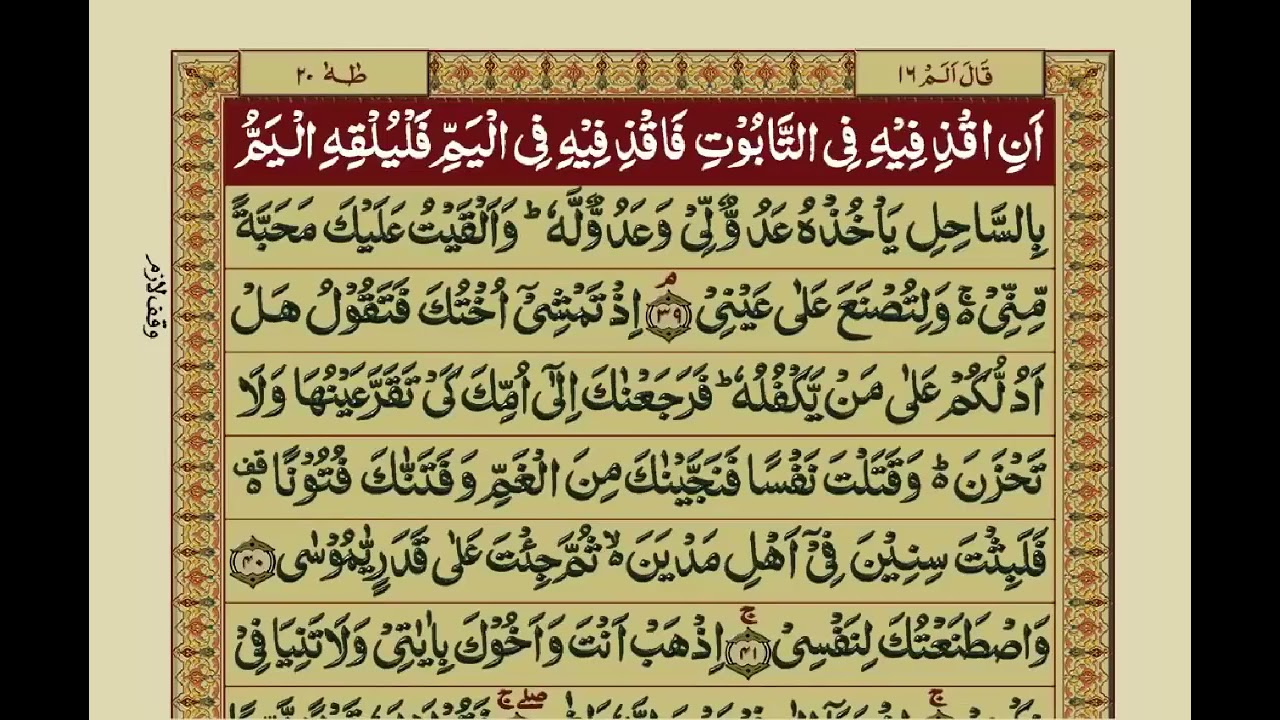 قَالَ اَلَمْ ١٦
طٰهٰ ٢٠
اَنِ اقْذِفِيْهِ فِى التَّابُوْتِ فَاقْذِفِيْهِ فِى الْيَمِّ فَلْيُلْقِهِ الْيَمُّ
بِالسَّاحِلِ يَاْخُذْهُ عَدُوٌّ لِّىْ وَعَدُوٌّ لَّهٗ ؕ وَاَلْقَيْتُ عَلَيْكَ مَحَبَّةً
مِّنِّىْ ۚ وَلِتُصْنَعَ عَلٰى عَيْنِىْ ۘ ﴿٣٩﴾ اِذْ تَمْشِىْۤ اُخْتُكَ فَتَقُوْلُ هَلْ
اَدُلُّكُمْ عَلٰى مَنْ يَّكْفُلُهٗ ؕ فَرَجَعْنٰكَ اِلٰٓى اُمِّكَ كَىْ تَقَرَّ عَيْنُهَا وَلَا
تَحْزَنَ ؕ وَقَتَلْتَ نَفْسًا فَنَجَّيْنٰكَ مِنَ الْغَمِّ وَفَتَنّٰكَ فُتُوْنًا ۗ قف
فَلَبِثْتَ سِنِيْنَ فِىْۤ اَهْلِ مَدْيَنَ ۙ ثُمَّ جِئْتَ عَلٰى قَدَرٍ يّٰمُوْسٰى ﴿٤٠﴾
وَاصْطَنَعْتُكَ لِنَفْسِىْ ۚ ﴿٤١﴾ اِذْهَبْ اَنْتَ وَاَخُوْكَ بِاٰيٰتِىْ وَلَا تَنِيَا فِىْ
وقف لازم